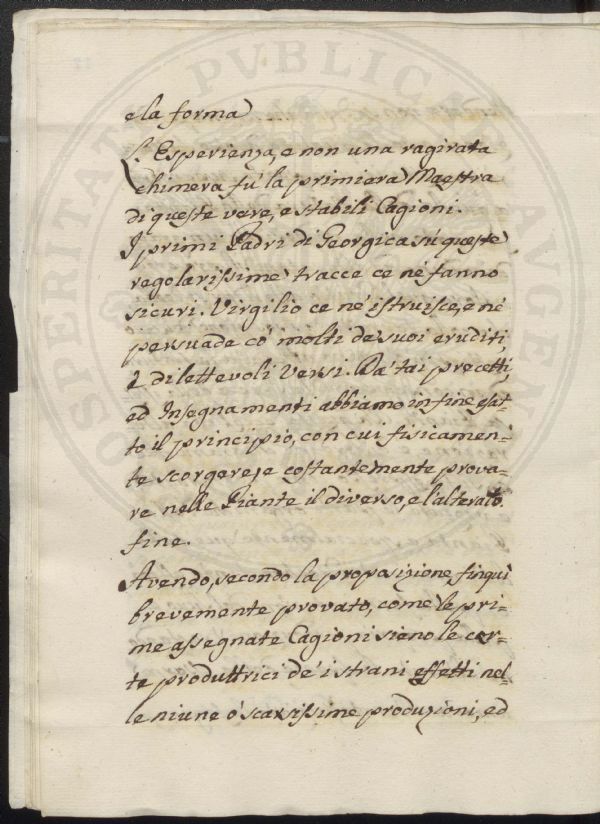 e la forma
L'Esperienza, e non una ragirata
chimera fú la primiera Maestra
di queste vere, e stabili Cagioni.
I primi Padri di Georgica sù queste
regolarissime tracce ce né fanno
sicuri. Virgilio ce né istruisce, e né
persuade có molti de suoi eruditi,
e dilettevoli Versi. Da' tai precetti,
ed Insegnamenti abbiamo infine esat-
to il principio, con cui fisicamen-
te scorgere, e costantemente prova-
re nelle Piante il diverso, e l'alterato
fine.
Avendo, secondo la proposizione finqui
brevemente provato, come le pri-
me assegnate Cagioni sieno le cer-
te produttrici de' i strani effetti nel-
le niune ó scarsissime produzioni, ed